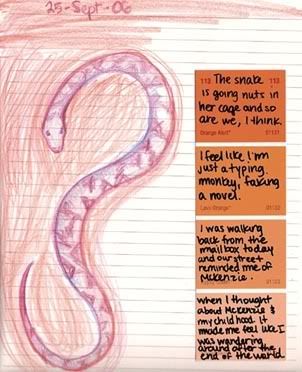 25-Sept-06
113 The snake 113
is going nuts in
her cage and so
are we, I think.
Orange Alert™ 01131
I feel like I'm
just a typing
monky, faking
a novel.
Lava Orange™ 01132
I was walking
back from the
mailbox today
and our street
reminded me of
Mckenzie.
when I thought
about McKenzie &
my childhood it
made me feel like I
was wandering
around after the
end of the world